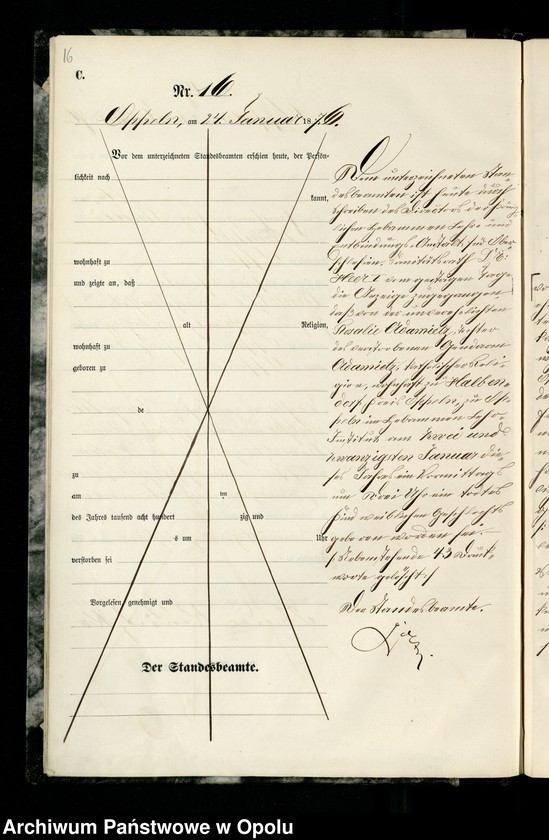 16
C.
Nr. 16.
Oppeln, am 24. Januar 1876.
Vor dem unterzeichneten Standesbeamten erschien heute, der Persön-
lichkeit nach
kannt,
wohnhaft zu
und zeigte an, daß
alt Religion,
wohnhaft zu
geboren zu
de
zu
am ten
des Jahres tausend acht hundert zig und
s um Uhr
verstorben sei
Vorgelesen, genehmigt und
Der Standesbeamte.
Dem unterzeichneten Stan-
desbeamten ist heute durch
Schreiben des Directors der
Hebammen Lehr- und
Entbindungs-Anstalt für Ober-
schlesien, Sanitätsrath Dr.
vom gestrigen Tage
die Anzeige zugegangen,
daß von der unverehelichten
Rosalie Adamietz, Tochter
des verstorbenen
Adamietz, katholischer Reli-
gion, wohnhaft zu Halben-
dorf Kreis Oppeln, zu Op-
peln im Hebammen Lehr-
Institut am zwei und
zwanzigsten Januar die-
ses Jahres Vormittags
um drei Uhr ein todtes
Kind weiblichen Geschlechts
geboren worden sei.
Nebenstehende 43 Druck-
worte gelöscht.
Der Standesbeamte.
Archiwum Państwowe w Opolu